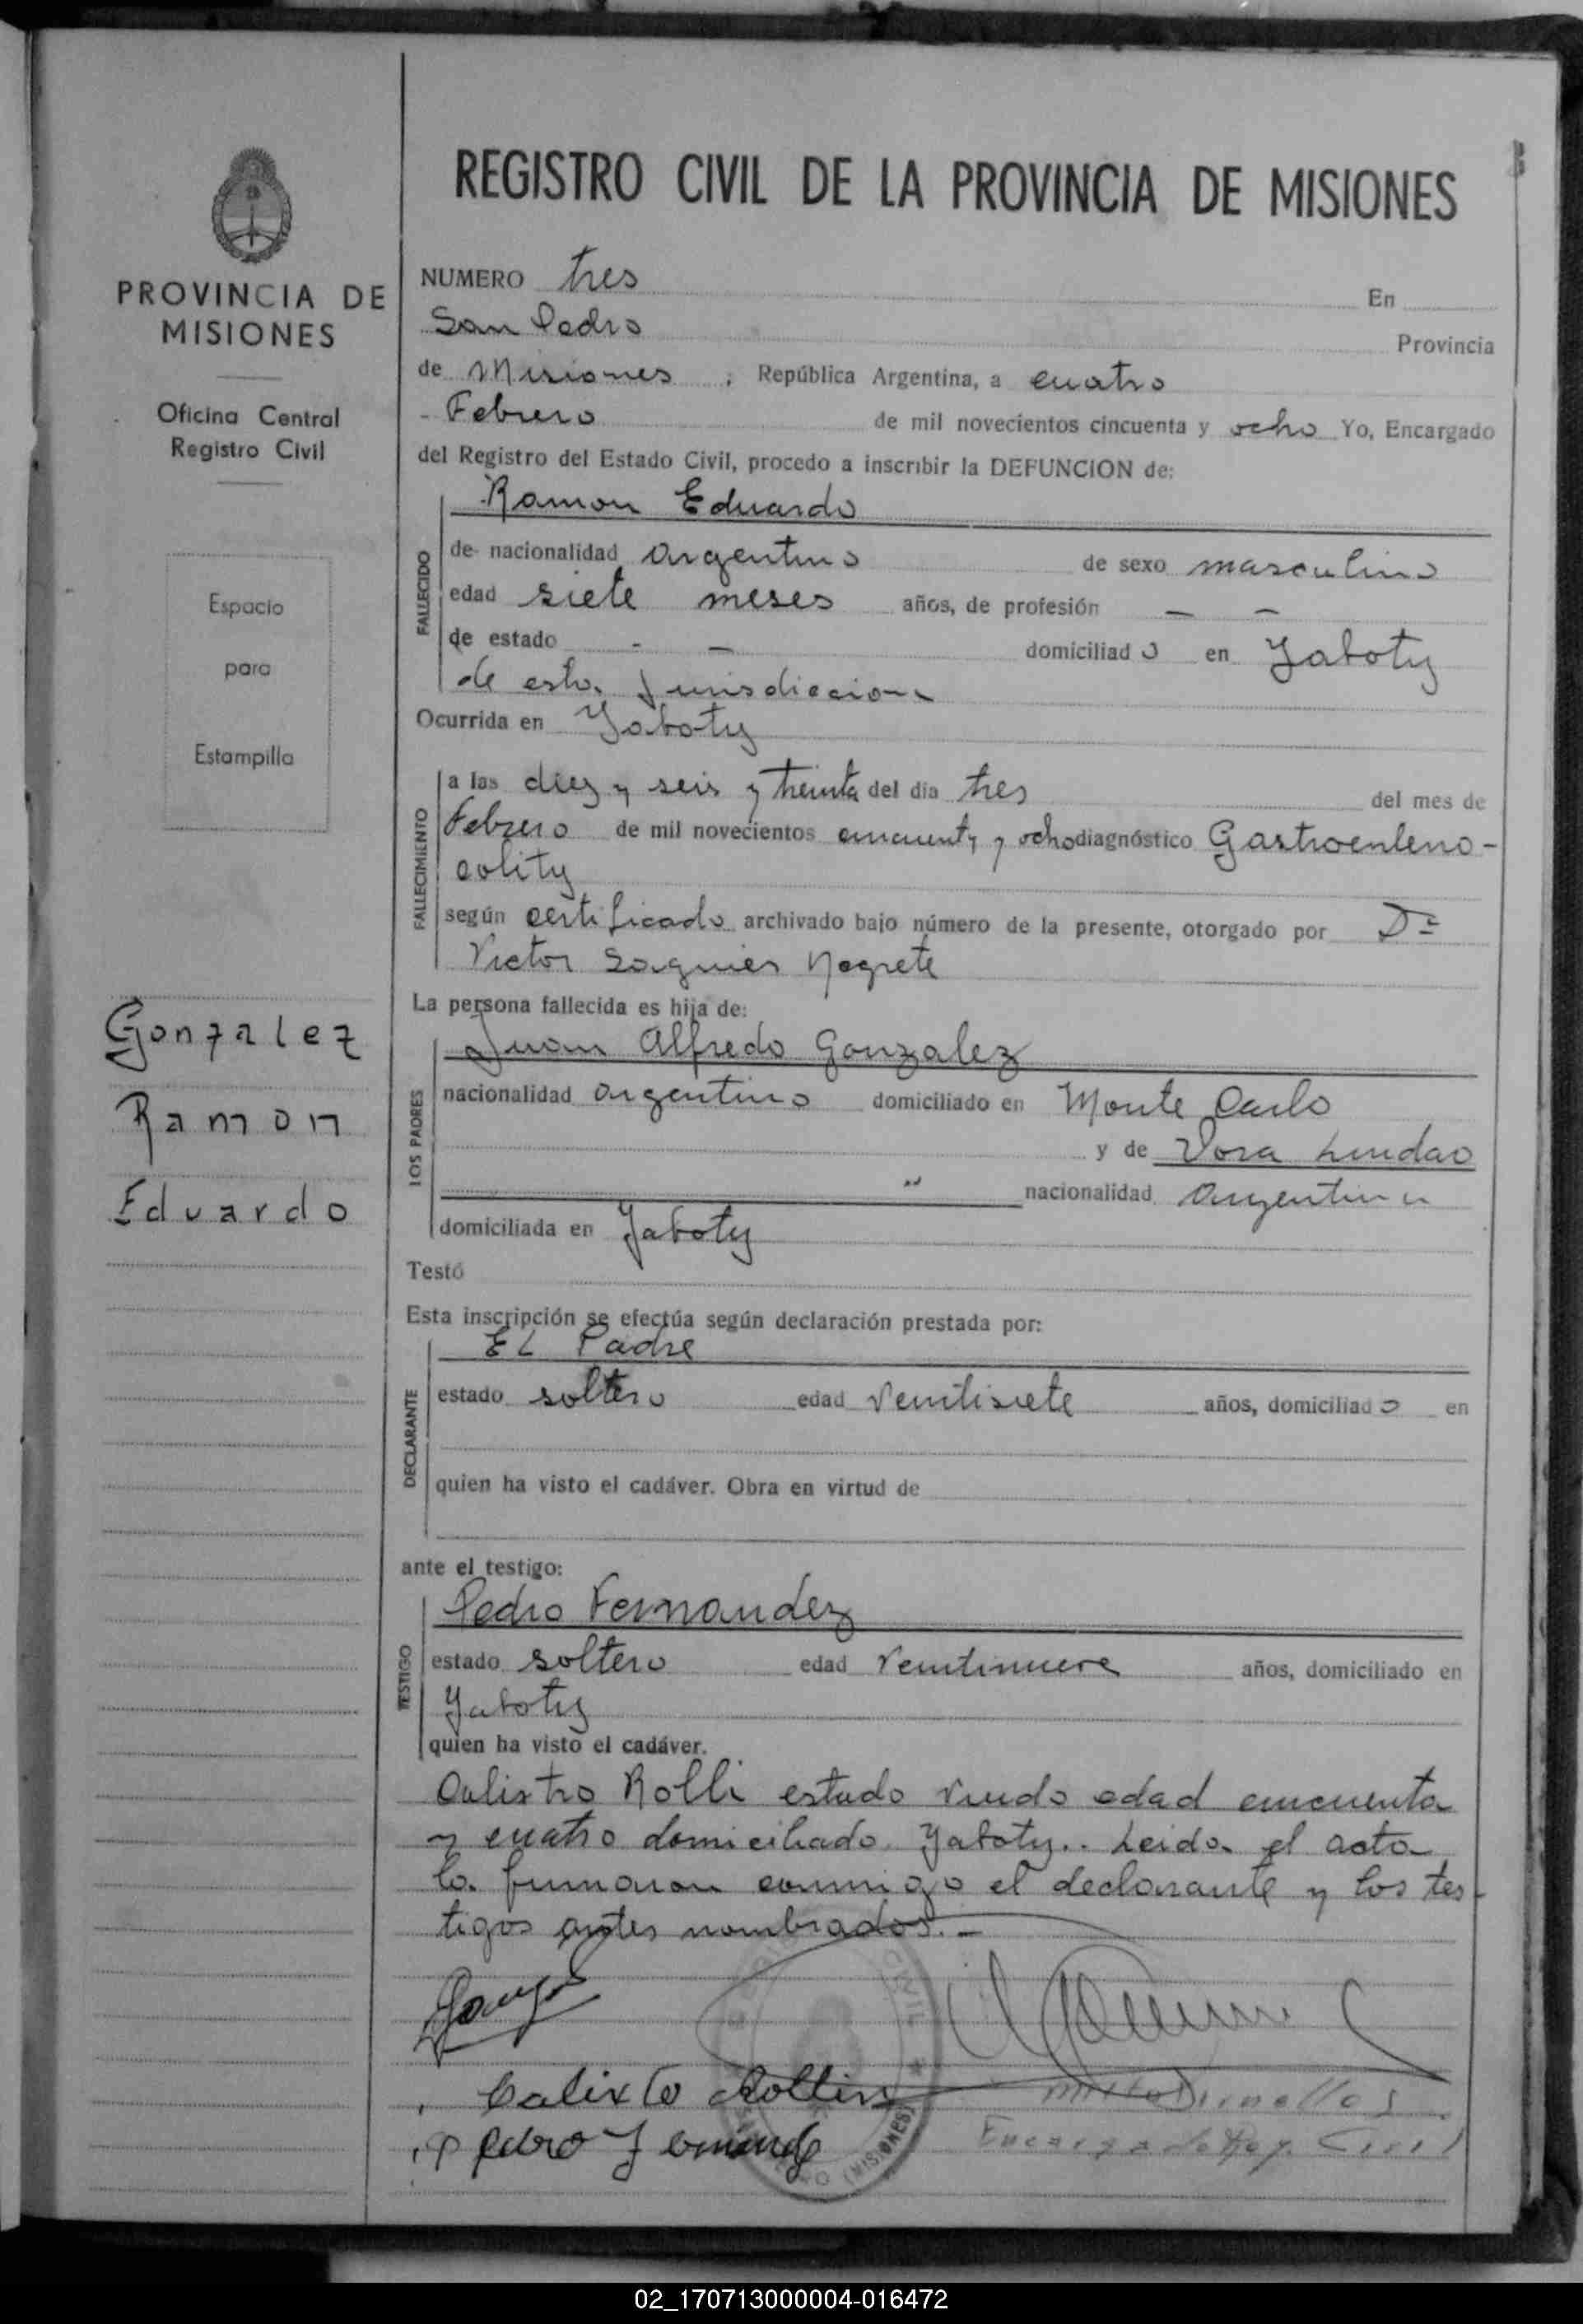 REGISTRO CIVIL DE LA PROVINCIA DE MISIONES
PROVINCIA DE
MISIONES
Oficina Central
Registro Civil
Espacio
para
Estampilla
Gonzalez
Ramon
Eduardo
NUMERO tres En
San Pedro Provincia
de Misiones, República Argentina, a cuatro
- Febrero de mil novecientos cincuenta y ocho Yo, Encargado
del Registro del Estado Civil, procedo a inscribir la DEFUNCION de:
FALLECIDO
Ramon Eduardo
de nacionalidad argentino de sexo masculino
edad siete meses años, de profesión — —
de estado - — domiciliado en Yaboty
de esta Jurisdiccion
Ocurrida en Yaboty
FALLECIMIENTO
a las diez y seis y treinta del día tres del mes de
Febrero de mil novecientos cincuenta y ocho diagnóstico Gastroentero-
colity
según certificado archivado bajo número de la presente, otorgado por Dr
Victor Saguier Negrete
La persona fallecida es hija de:
LOS PADRES
Juan Alfredo Gonzalez
nacionalidad argentino domiciliado en Monte Carlo
y de Dora Lindao
" nacionalidad argentina
domiciliada en Yaboty
Testó
Esta inscripción se efectúa según declaración prestada por:
DECLARANTE
EL Padre
estado soltero edad Veintisiete años, domiciliado en
quien ha visto el cadáver. Obra en virtud de
ante el testigo:
TESTIGO
Pedro Fernandez
estado soltero edad Veintinueve años, domiciliado en
Yaboty
quien ha visto el cadáver.
Calixtro Rolli estado viudo edad cincuenta
y cuatro domiciliado Yaboty.. Leida el acta
la firmaron conmigo el declarante y los tes-
tigos antes nombrados.-
Calixto Rollin
Pedro Fernandez
Encargado Reg. Civil
CIVIL
(MISIONES)
02_170713000004-016472